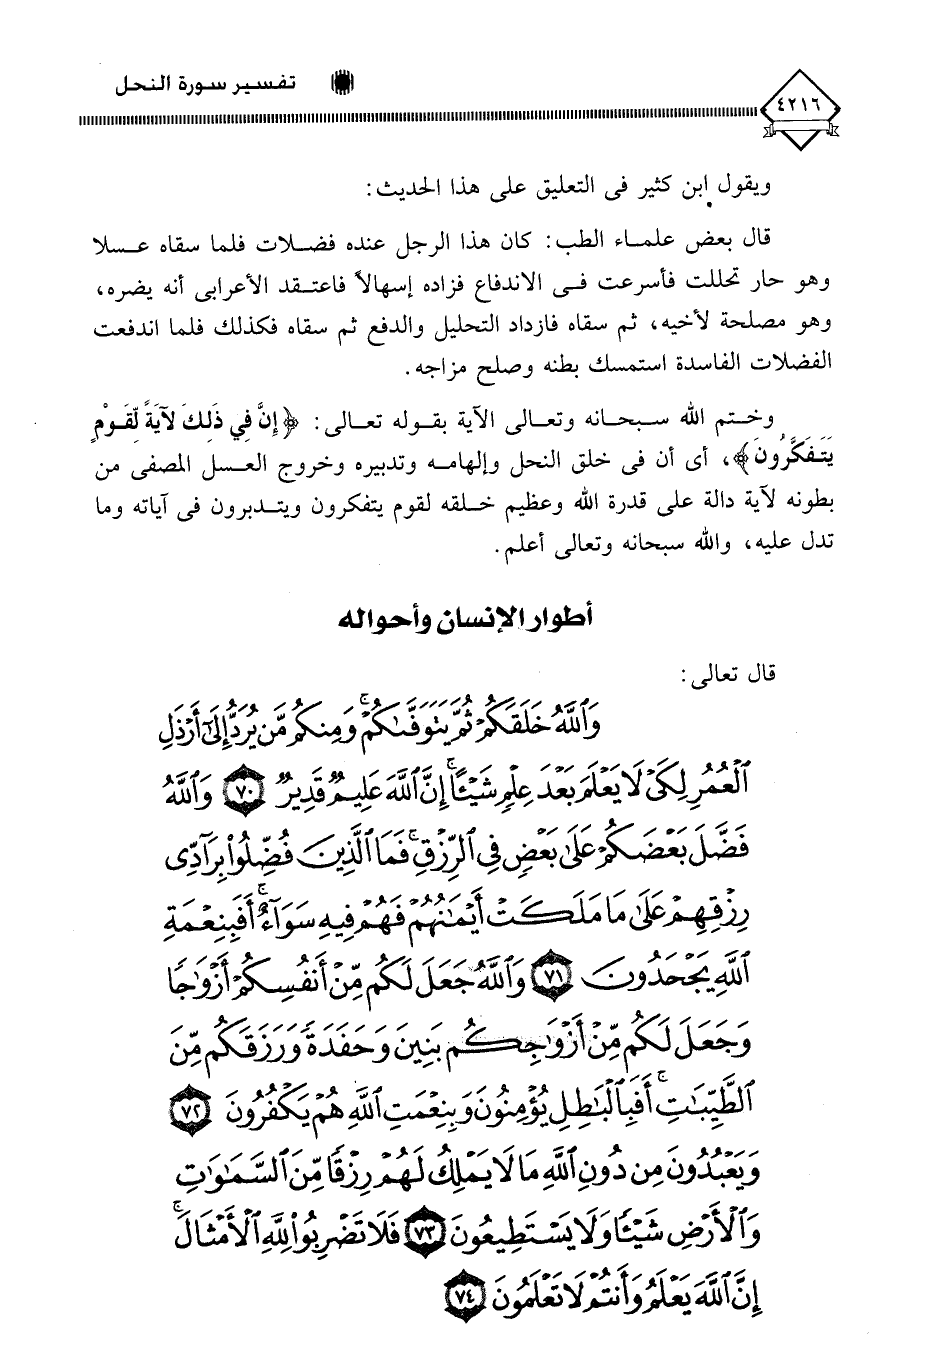 ٤٢١٦
تفسير سورة النحل
ويقول ابن كثير فى التعليق على هذا الحديث:
قال بعض علماء الطب: كان هذا الرجل عنده فضلات فلما سقاه عسلا
وهو حار تحللت فأسرعت فى الاندفاع فزاده إسهالاً فاعتقد الأعرابى أنه يضره،
وهو مصلحة لأخيه، ثم سقاه فازداد التحليل والدفع ثم سقاه فكذلك فلما اندفعت
الفضلات الفاسدة استمسك بطنه وصلح مزاجه.
وختم الله سبحانه وتعالى الآية بقوله تعالى: ﴿إِنَّ فِي ذَلِكَ لآيَةً لِّقَوْمٍ
يَتَفَكَّرُونَ﴾، أى أن فى خلق النحل وإلهامه وتدبيره وخروج العسل المصفى من
بطونه لآية دالة على قدرة الله وعظيم خلقه لقوم يتفكرون ويتدبرون فى آياته وما
تدل عليه، والله سبحانه وتعالى أعلم.
أطوار الإنسان وأحواله
قال تعالى:
وَٱللَّهُ خَلَقَكُمْ ثُمَّ يَتَوَفَّىٰكُمْ ۚ وَمِنكُم مَّن يُرَدُّ إِلَىٰٓ أَرْذَلِ
ٱلْعُمُرِ لِكَىْ لَا يَعْلَمَ بَعْدَ عِلْمٍ شَيْـًٔا ۚ إِنَّ ٱللَّهَ عَلِيمٌ قَدِيرٌ ٧٠ وَٱللَّهُ
فَضَّلَ بَعْضَكُمْ عَلَىٰ بَعْضٍ فِى ٱلرِّزْقِ ۚ فَمَا ٱلَّذِينَ فُضِّلُوا۟ بِرَآدِّى
رِزْقِهِمْ عَلَىٰ مَا مَلَكَتْ أَيْمَـٰنُهُمْ فَهُمْ فِيهِ سَوَآءٌ ۚ أَفَبِنِعْمَةِ
ٱللَّهِ يَجْحَدُونَ ٧١ وَٱللَّهُ جَعَلَ لَكُم مِّنْ أَنفُسِكُمْ أَزْوَٰجًا
وَجَعَلَ لَكُم مِّنْ أَزْوَٰجِكُم بَنِينَ وَحَفَدَةً وَرَزَقَكُم مِّنَ
ٱلطَّيِّبَـٰتِ ۚ أَفَبِٱلْبَـٰطِلِ يُؤْمِنُونَ وَبِنِعْمَتِ ٱللَّهِ هُمْ يَكْفُرُونَ ٧٢
وَيَعْبُدُونَ مِن دُونِ ٱللَّهِ مَا لَا يَمْلِكُ لَهُمْ رِزْقًا مِّنَ ٱلسَّمَـٰوَٰتِ
وَٱلْأَرْضِ شَيْـًٔا وَلَا يَسْتَطِيعُونَ ٧٣ فَلَا تَضْرِبُوا۟ لِلَّهِ ٱلْأَمْثَالَ ۚ
إِنَّ ٱللَّهَ يَعْلَمُ وَأَنتُمْ لَا تَعْلَمُونَ ٧٤